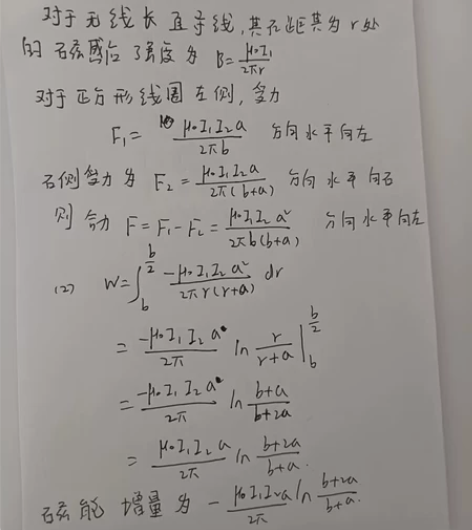 对于无线长直导线,其在距其为r处
的磁感应强度为 B=μ₀I₁/2πr
对于正方形线圈左侧,受力
F₁= μ₀I₁I₂a/2πb 方向水平向左
右侧受力为 F₂=μ₀I₁I₂a/2π(b+a) 方向水平向右
则合力 F=F₁-F₂=μ₀I₁I₂a²/2πb(b+a) 方向水平向左
(2) W=∫_b^{b/2} -μ₀I₁I₂a²/2πr(r+a) dr
= -μ₀I₁I₂a/2π ln r/r+a |_b^{b/2}
= -μ₀I₁I₂a/2π ln b+a/b+2a
= μ₀I₁I₂a/2π ln b+2a/b+a.
磁能增量为 - μ₀I₁I₂a/2π ln b+2a/b+a.